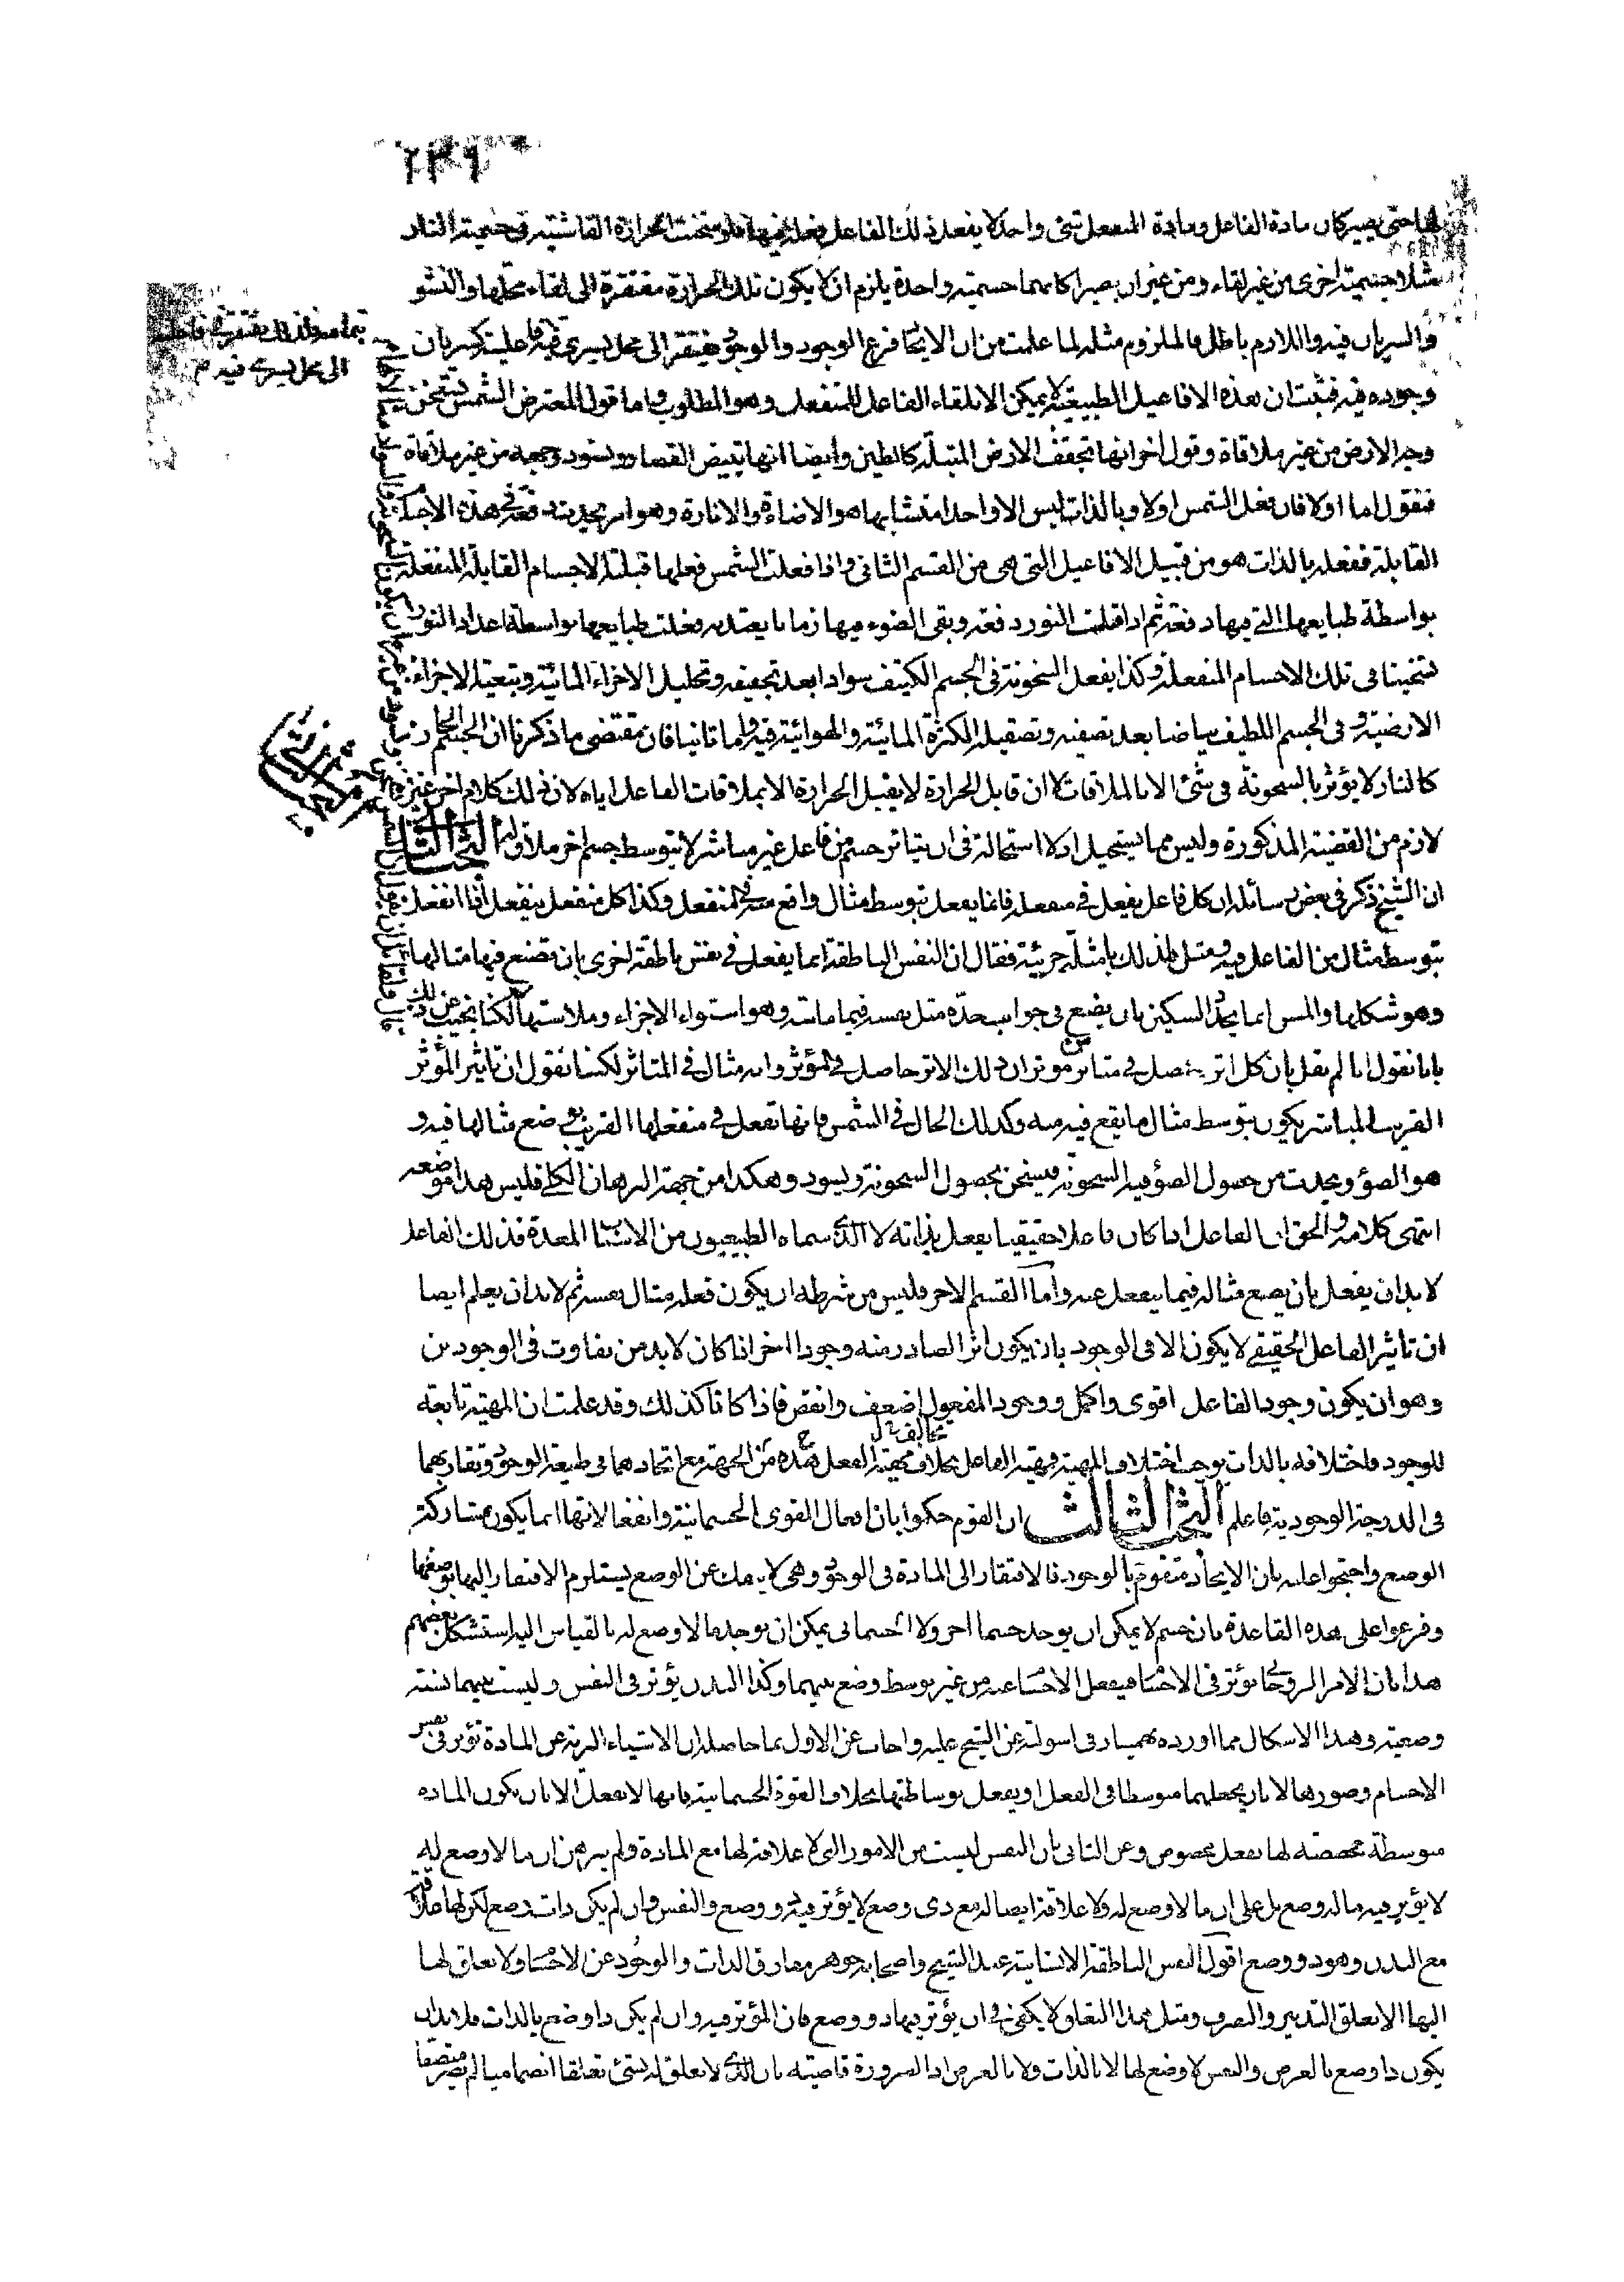 ٢٣٩
لها حتى يصير كان مادة الفاعل ومادة المنفعل شئ واحد لا يفعل ذلك الفاعل فعله فيها فلو سخنت الحرارة الفاشية في جسمية النار
مثلا جسمية اخرى من غير لقاء ومن غير ان يصيرا كانهما جسمية واحدة يلزم ان لا يكون تلك الحرارة مفتقرة الى لقاء محلها والنشو
والسريان فيه واللازم باطل فالملزوم مثله لما علمت من ان الايجاد فرع الوجود والوجود يفتقر الى محل يسري فيه فاعليته كسريان
وجوده فيه فثبت ان هذه الافاعيل الطبيعية لا يمكن الا بلقاء الفاعل للمنفعل وهو المطلوب واما قول المعترض الشمس يتسخن
وجه الارض من غير ملاقاة وقول اخر انها تجفف الارض المبتلة كالطين وأيضا انها يبيض القصار ويسود وجهه من غير ملاقاة
فنقول اما اولا فان فعل الشمس اولا وبالذات ليس الا واحدا متشابها هو الاضاءة والانارة وهو امر يحدث دفعة في هذه الاجسام
القابلة ففعله بالذات هو من قبيل الافاعيل التي هي من القسم الثاني واذا فعلت الشمس فعلها قبلته الاجسام القابلة المنفعلة
بواسطة طبايعها التي فيها دفعة ثم اذا قبلت النور دفعة وبقي الضوء فيها زمانا يعتد به فعلت طبايعها بواسطة اعداد النور
تسخينا في تلك الاجسام المنفعلة وكذا يفعل السخونة في الجسم الكثيف سوادا بعد تجفيفه وتحليل الاجزاء المائية وتبعية الاجزاء
الارضية وفي الجسم اللطيف بياضا بعد تصفيته وتصقيله لكثرة المائية والهوائية فيه واما ثانيا فان مقتضى ما ذكرنا ان الجسم الحار
كالنار لا يؤثر بالسخونة في شئ الا بالملاقات لا ان قابل الحرارة لا يقبل الحرارة الا بملاقات الفاعل اياه لان ذلك كلام اخر غير
لازم من القضية المذكورة وليس مما يستحيل اذ لا استحالة في ان يتاثر جسم من فاعل غير مباشر لا بتوسط جسم اخر ملاق له البحث الثاني
ان الشيخ ذكر في بعض رسائله ان كل فاعل يفعل في منفعله فانما يفعل بتوسط مثال واقع منه في المنفعل وكذا كل منفعل ينفعل انما انفعل
بتوسط مثال من الفاعل فيه ومثل لذلك بامثلة جزئية فقال ان النفس الناطقة انما يفعل في نفس ناطقة اخرى بان تضع فيها مثالها
وهو شكلها والمسن انما يحدد السكين بان يضع في جوانب حده مثل نفسه فيما ماسه وهو استواء الاجزاء وملاستها لكنا نجيب عن ذلك
بانا نقول انا لم نقل بان كل اثر يحصل في متاثر من مؤثر ان ذلك الاثر حاصل في المؤثر وانه مثال في المتاثر لكنا نقول ان تاثير المؤثر
القريب المباشر يكون بتوسط مثال ما يقع فيه منه وكذلك الحال في الشمس فانها تفعل في منفعلها القريب بوضع مثالها فيه و
هو الضوء ويحدث من حصول الضوء فيه السخونة فيسخن بحصول السخونة ويسود وهكذا من جهة البرهان الكلي فليس هذا موضعه
انتهى كلامه والحق ان الفاعل اذا كان فاعلا حقيقيا يفعل بذاته لا الذي سماه الطبيعيون من الاسباب المعدة فذلك الفاعل
لا بد ان يفعل بان يضع مثاله فيما ينفعل عنه واما القسم الاخر فليس من شرطه ان يكون فعله مثال نفسه ثم لا بد ان يعلم ايضا
ان تاثير الفاعل الحقيقي لا يكون الا في الوجود بان يكون اثر الصادر منه وجودا اخر اذا كان لا بد من تفاوت في الوجودين
وهو ان يكون وجود الفاعل اقوى واكمل ووجود المفعول اضعف وانقص فاذا كانا كذلك وقد علمت ان المهية تابعة
للوجود فاختلافه بالذات يوجب اختلاف المهية فمهية الفاعل يخالف مهية الفعل من هذه الجهة مع اتحادهما في طبيعة الوجود وتقاربهما
في الدرجة الوجودية فاعلم البحث الثالث ان القوم حكموا بان افعال القوى الجسمانية وانفعالاتها انما يكون بمشاركة
الوضع واحتجوا عليه بان الايجاد متقوم بالوجود فالافتقار الى المادة في الوجود وهي لا ينفك عن الوضع يستلزم الافتقار اليها بوضعها
وفرعوا على هذه القاعدة بان جسم لا يمكن ان يوجد جسما اخر ولا الجسماني يمكن ان يوجد ما لا وضع له بالقياس اليه استشكل بعضهم
هذا بان الامر الروحاني يؤثر في الاجسام فيفعل الاجسام عنه من غير توسط وضع بينهما وكذا البدن يؤثر في النفس وليست بينهما نسبة
وضعية وهذا الاشكال مما اورده بهمنيار في اسولته عن الشيخ عليه واجاب عن الاول بما حاصله ان الاشياء البرية عن المادة تؤثر في نفس
الاجسام وصورها لا بان يجعلهما متوسطا في الفعل او يفعل بوساطتها بخلاف القوة الجسمانية فانها لا تفعل الا بان يكون المادة
متوسطة مخصصة لها بفعل مخصوص وعن الثاني بان النفس ليست من الامور التي لا علاقة لها مع المادة ولم يبرهن ان ما لا وضع له
لا يؤثر فيه ما له وضع بل على ان ما لا وضع له ولا علاقة ايضا له مع ذي وضع لا يؤثر فيه ذو وضع والنفس وان لم يكن ذات وضع لكن لها علاقة
مع البدن وهو ذو وضع اقول النفس الناطقة الانسانية عند الشيخ واصحابه جوهر مفارق الذات والوجود عن الاجسام ولا تعلق لها
اليها الا تعلق التدبير والتصرف ومثل هذا التعلق لا يكفي في ان يؤثر فيها ذو وضع فان المؤثر فيه وان لم يكن ذا وضع بالذات فلا بد ان
يكون ذا وضع بالعرض والنفس لا وضع لها لا بالذات ولا بالعرض اذ الضرورة قاضية بان الذي لا تعلق له بشئ تعلقا انضماميا لم يصر متصفا
الى محل يسري فيه